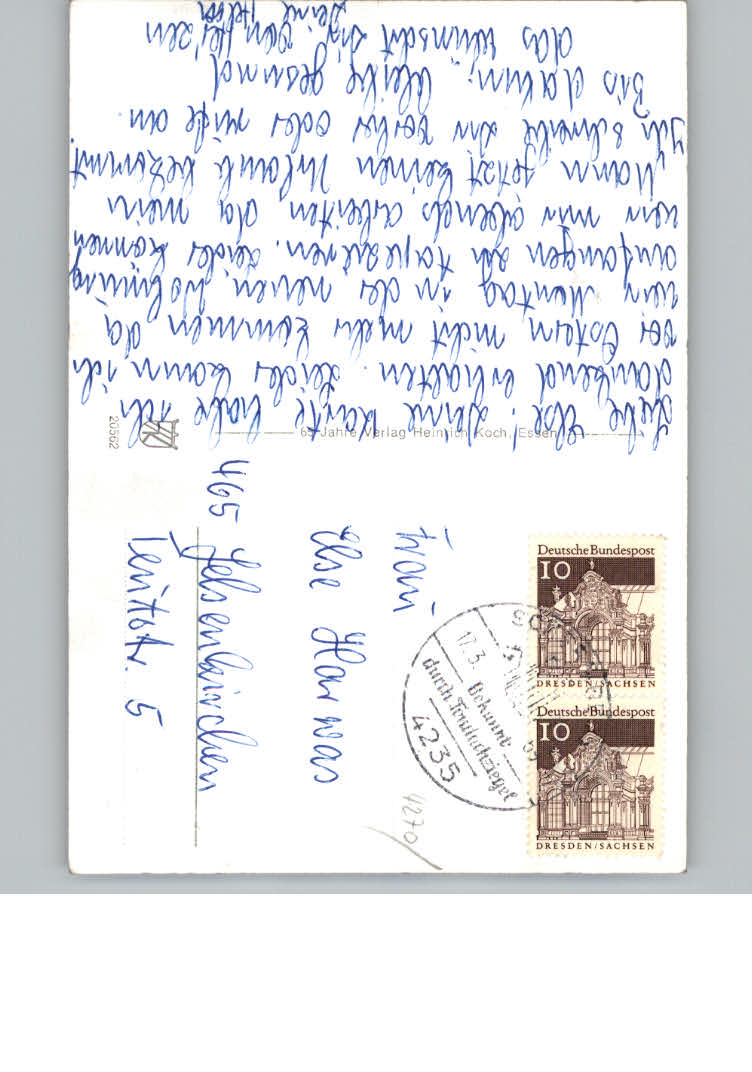 Liebe Else! Deine Karte habe ich
dankend erhalten. Leider kann ich
vor Ostern nicht mehr kommen, da
wir Montag in der neuen Wohnung
anfangen zu tapezieren. Leider können
wir nur abends arbeiten da mein
Mann jetzt keinen Urlaub bekommt.
Ich schreibe dir vorher oder rufe an
Bis dahin, bleibe gesund
das wünscht dir von Herzen
Deine
65 Jahre Verlag Heinrich Koch, Essen
20562
Frau
Else Harwas
465 Gelsenkirchen
Leutstr. 5
Deutsche Bundespost
10
DRESDEN/SACHSEN
Deutsche Bundespost
10
DRESDEN/SACHSEN
17.3.
Bekannt
durch Tondachziegel
4235
4270